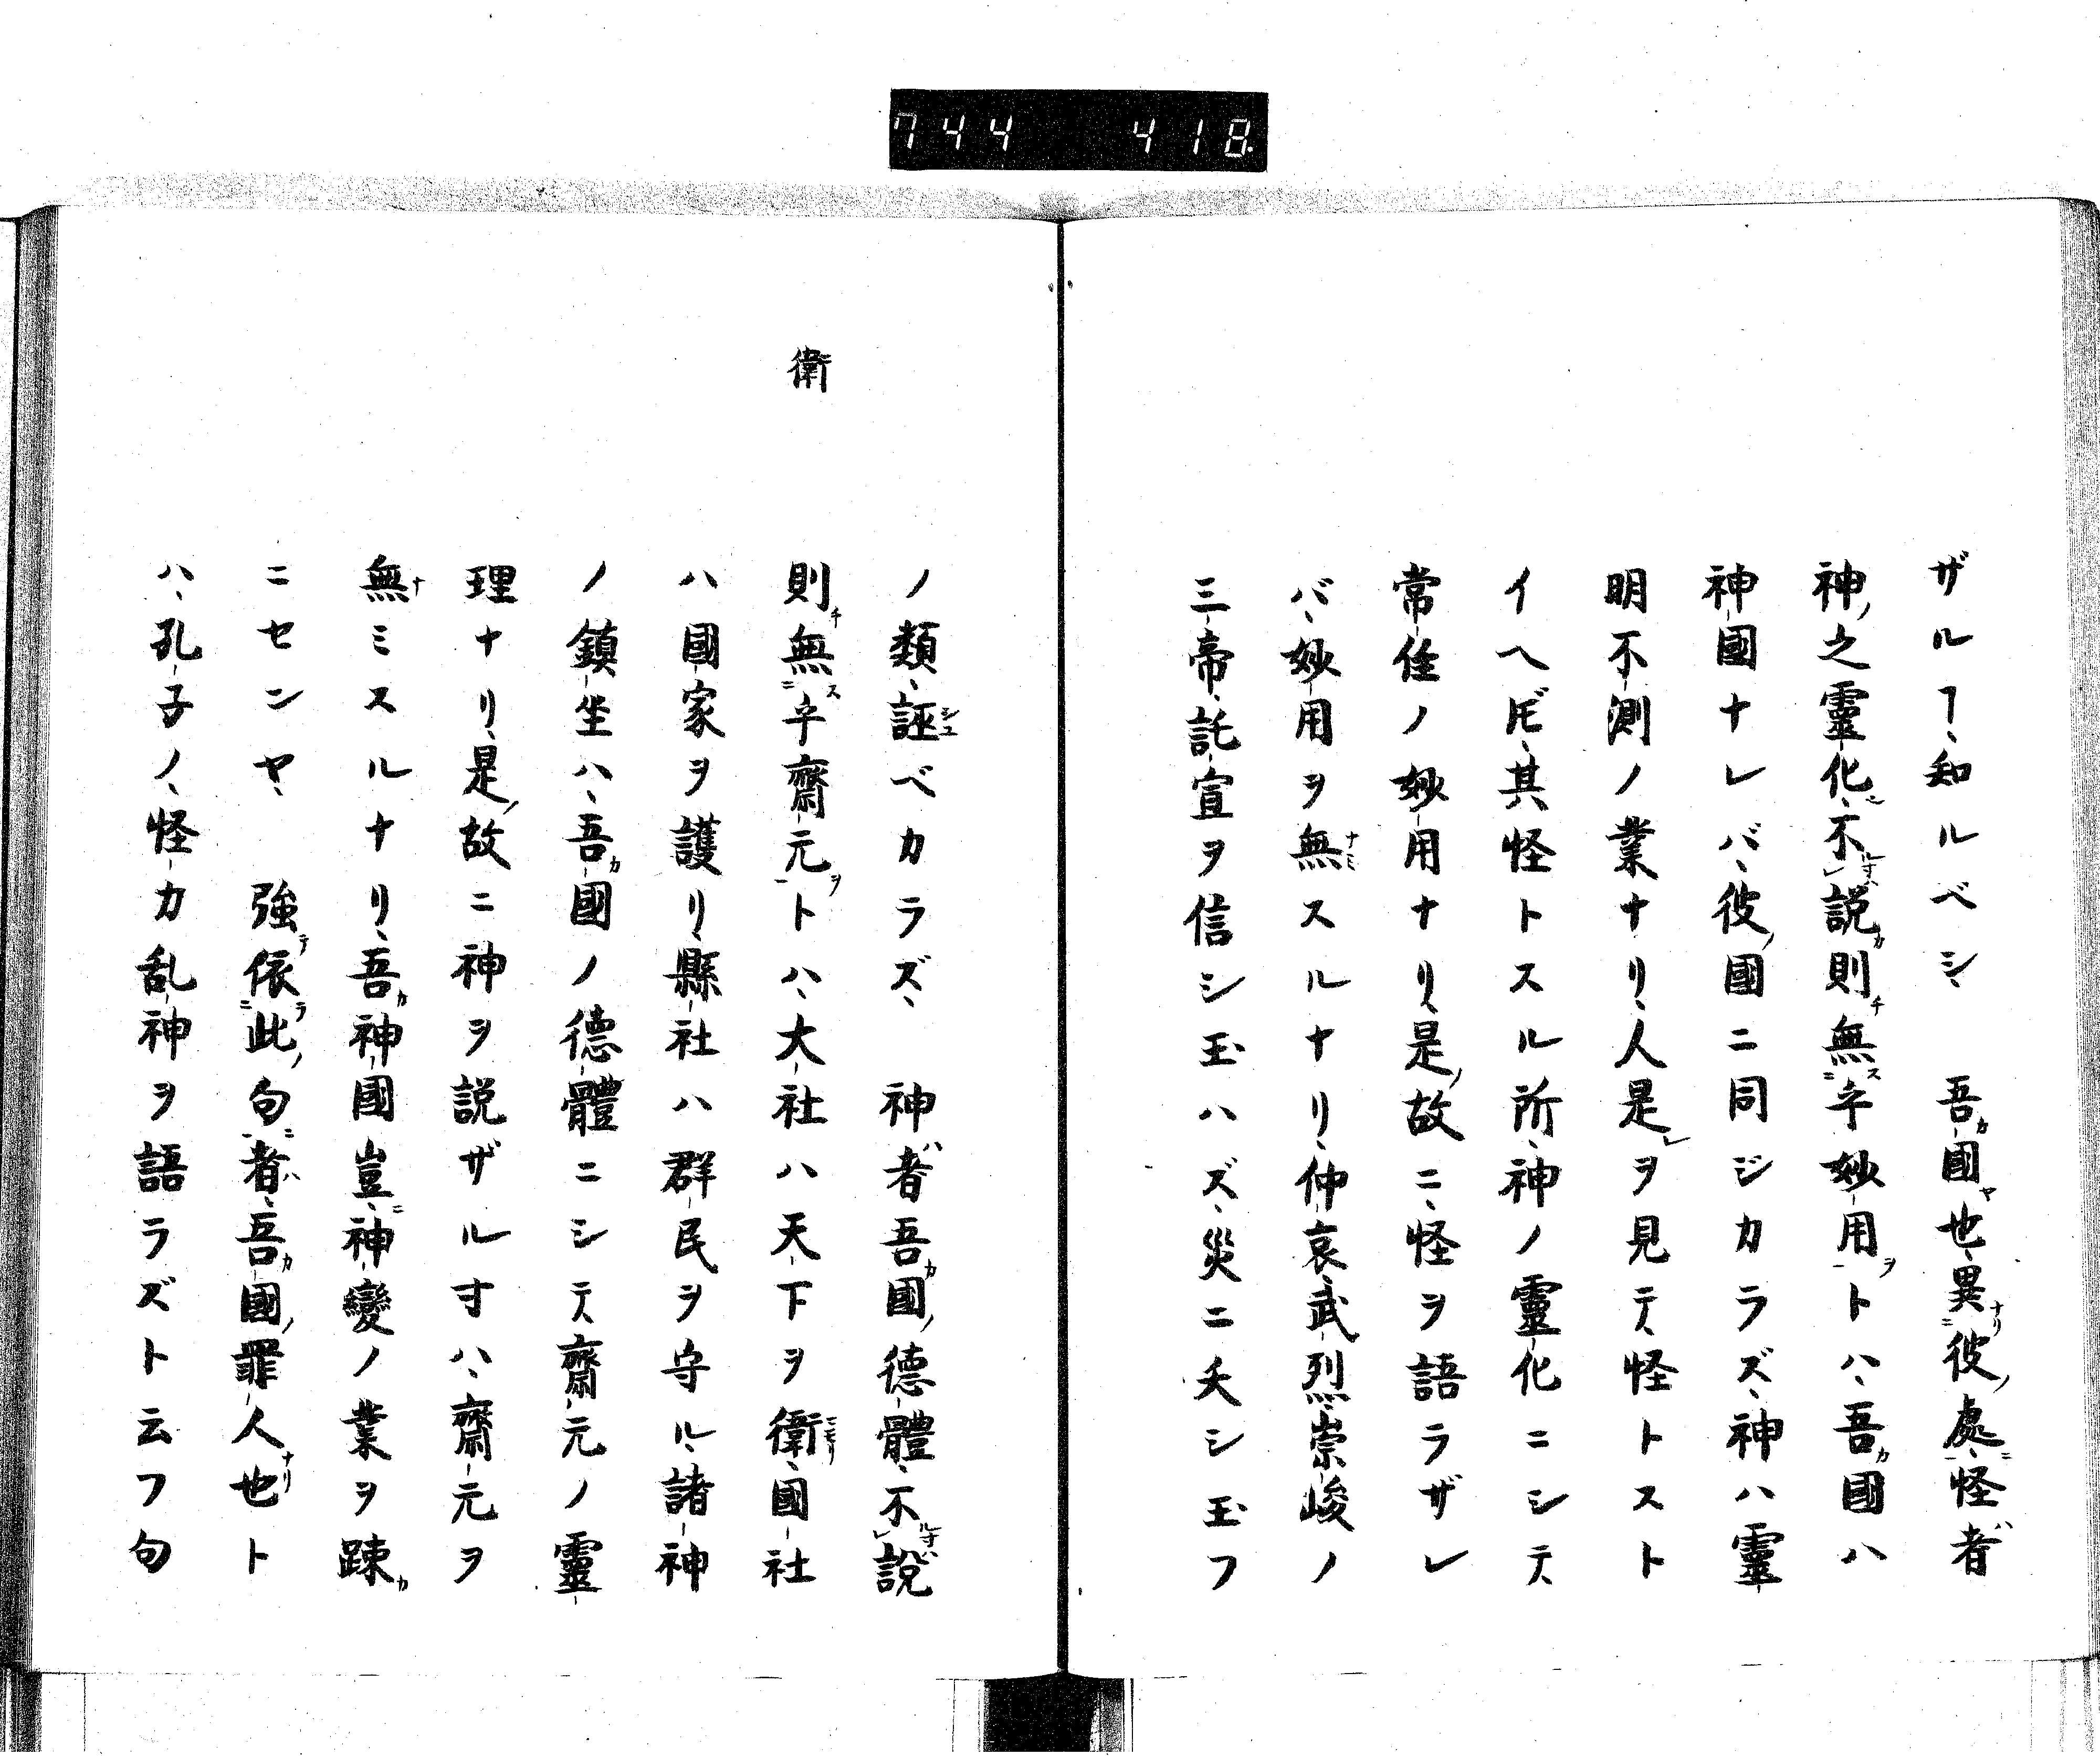 744 418
ザルヿ、知ルベシ、 吾國也、異彼處、怪者
神之靈化、不説則無乎妙用トハ、吾國ハ
神國ナレバ、彼國ニ同ジカラズ、神ハ靈
明不測ノ業ナリ、人是ヲ見テ、怪トスト
イヘ𪜈、其怪トスル所、神ノ靈化ニシテ、
常住ノ妙用ナリ、是故ニ、怪ヲ語ラザレ
バ、妙用ヲ無スルナリ、仲哀、武烈、崇峻ノ
三帝、託宣ヲ信シ玉ハズ、災ニ夭シ玉フ
ノ類、誣ベカラズ、 神者吾國德體、不説
衛
則無乎齋元トハ、大社ハ天下ヲ衛、國社
ハ國家ヲ護リ、縣社ハ群民ヲ守ル、諸神
ノ鎮坐ハ、吾國ノ德體ニシテ、齋元ノ靈
理ナリ、是故ニ神ヲ説ザル寸ハ、齋元ヲ
無ミスルナリ、吾神國豈、神變ノ業ヲ疎
ニセンヤ、 強依此句者、吾國罪人也ト
ハ、孔子ノ、怪力乱神ヲ語ラズト云フ句